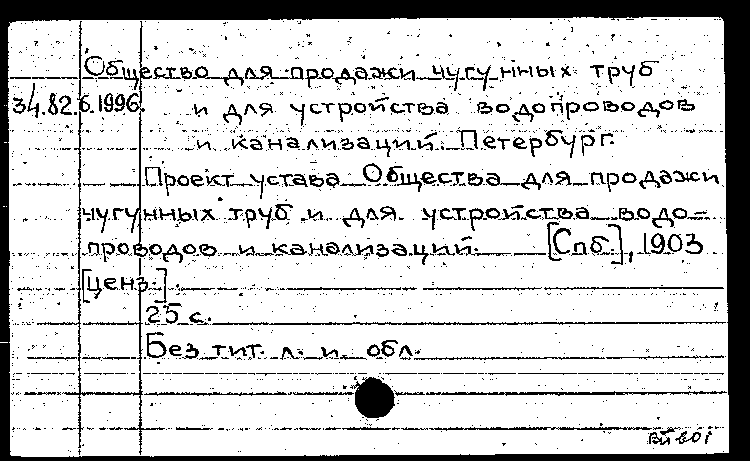 Общество для продажи чугунных труб
34.82.6.1996. и для устройства водопроводов
и канализаций. Петербург.
Проект устава Общества для продажи
чугунных труб и для устройства водо-
проводов и канализаций. [Спб.], 1903
[ценз.].
25 с.
Без тит. л. и обл.